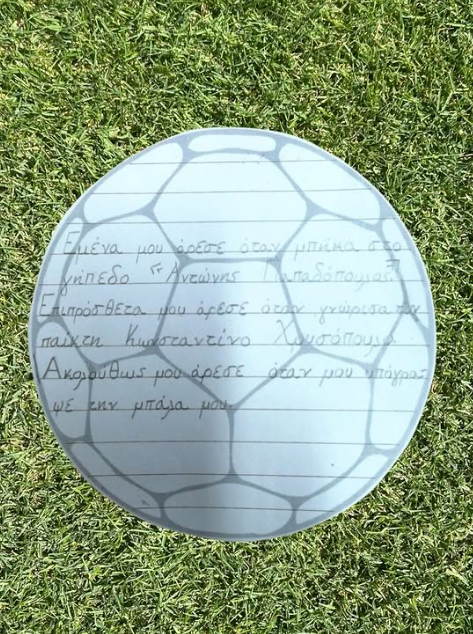 Εμένα μου άρεσε όταν μπήκα στο
γήπεδο "Αντώνης Παπαδόπουλος".
Επιπρόσθετα μου άρεσε όταν γνώρισα τον
παίκτη Κωσταντίνο Χρυσόπουλο.
Ακολούθως μου άρεσε όταν μου υπόγρα-
ψε την μπάλα μου.